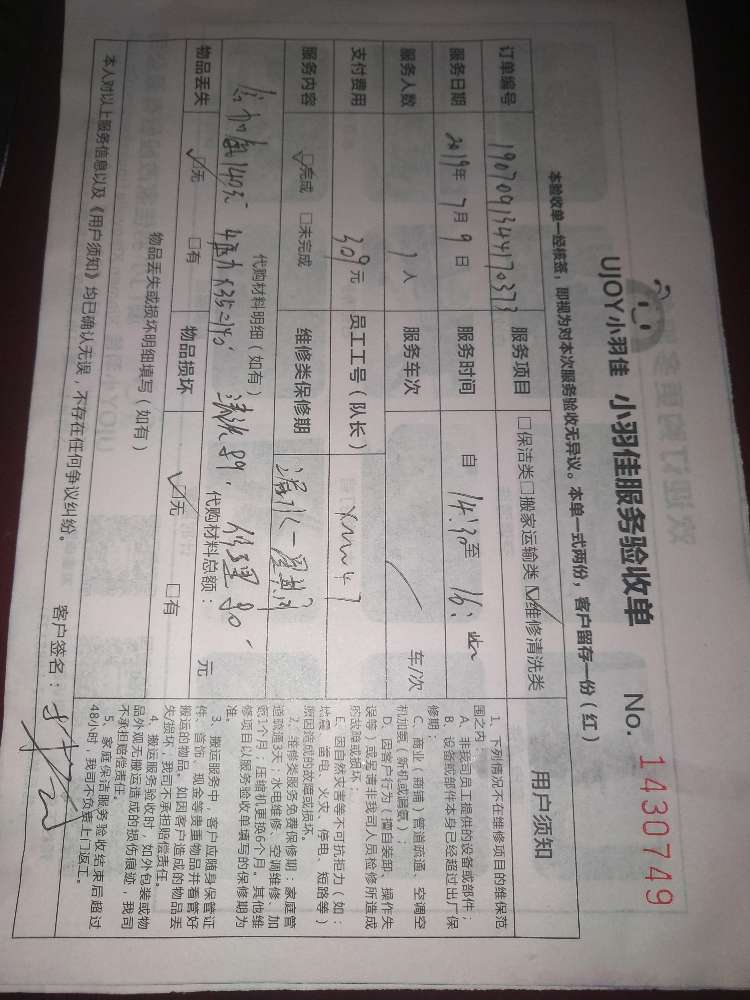 UJOY小羽佳 小羽佳服务验收单 No. 1430749
本验收单一经核签，即视为对本次服务验收无异议。本单一式两份，客户留存一份（红）
订单编号 1907091344170373 服务项目 □保洁类□搬家运输类☑维修清洗类
服务日期 2019年7月9日 服务时间 自 14:30至 16:
服务人数 1人 服务车次 / 车/次
支付费用 309元 员工工号（队长） xmw47
服务内容 ☑完成 □未完成 维修类保修期 漏水一星期
代购材料明细（如有）
加氟140元 4压力×35=140 清洗89. 修理80 代购材料总额： 元
物品丢失 ☑无 □有 物品损坏 ☑无 □有
物品丢失或损坏明细填写（如有）
本人对以上服务信息以及《用户须知》均已确认无误，不存在任何争议纠纷。
客户签名：
用户须知
1、下列情况不在维修项目的维保范
围之内：
A、非我司员工提供的设备或部件；
B、设备或部件本身已经超过出厂保
修期；
C、商业（商铺）管道疏通、空调空
机加氟（新机或漏氟）；
D、因客户行为（擅自装卸、操作失
误等）或是请非我司人员检修所造成
的故障或损坏；
E、因自然灾害等不可抗拒力（如：
地震、雷电、火灾、停电、短路等）
原因造成的故障或损坏。
2、维修类服务免费保修期：家庭管
道疏通3天；水电维修、空调维修、加
氟1个月；压缩机更换6个月。其他维
修项目以服务验收单填写的保修期为
准。
3、搬运服务中，客户应随身保管证
件、首饰、现金等贵重物品并看管好
搬运的物品。如因客户造成的物品丢
失/损坏，我司不承担赔偿责任。
4、搬运服务验收时，如外包装或物
品外观无搬运造成的损伤痕迹，我司
不承担赔偿责任。
5、家庭保洁服务验收结束后超过
48小时，我司不负责上门返工。